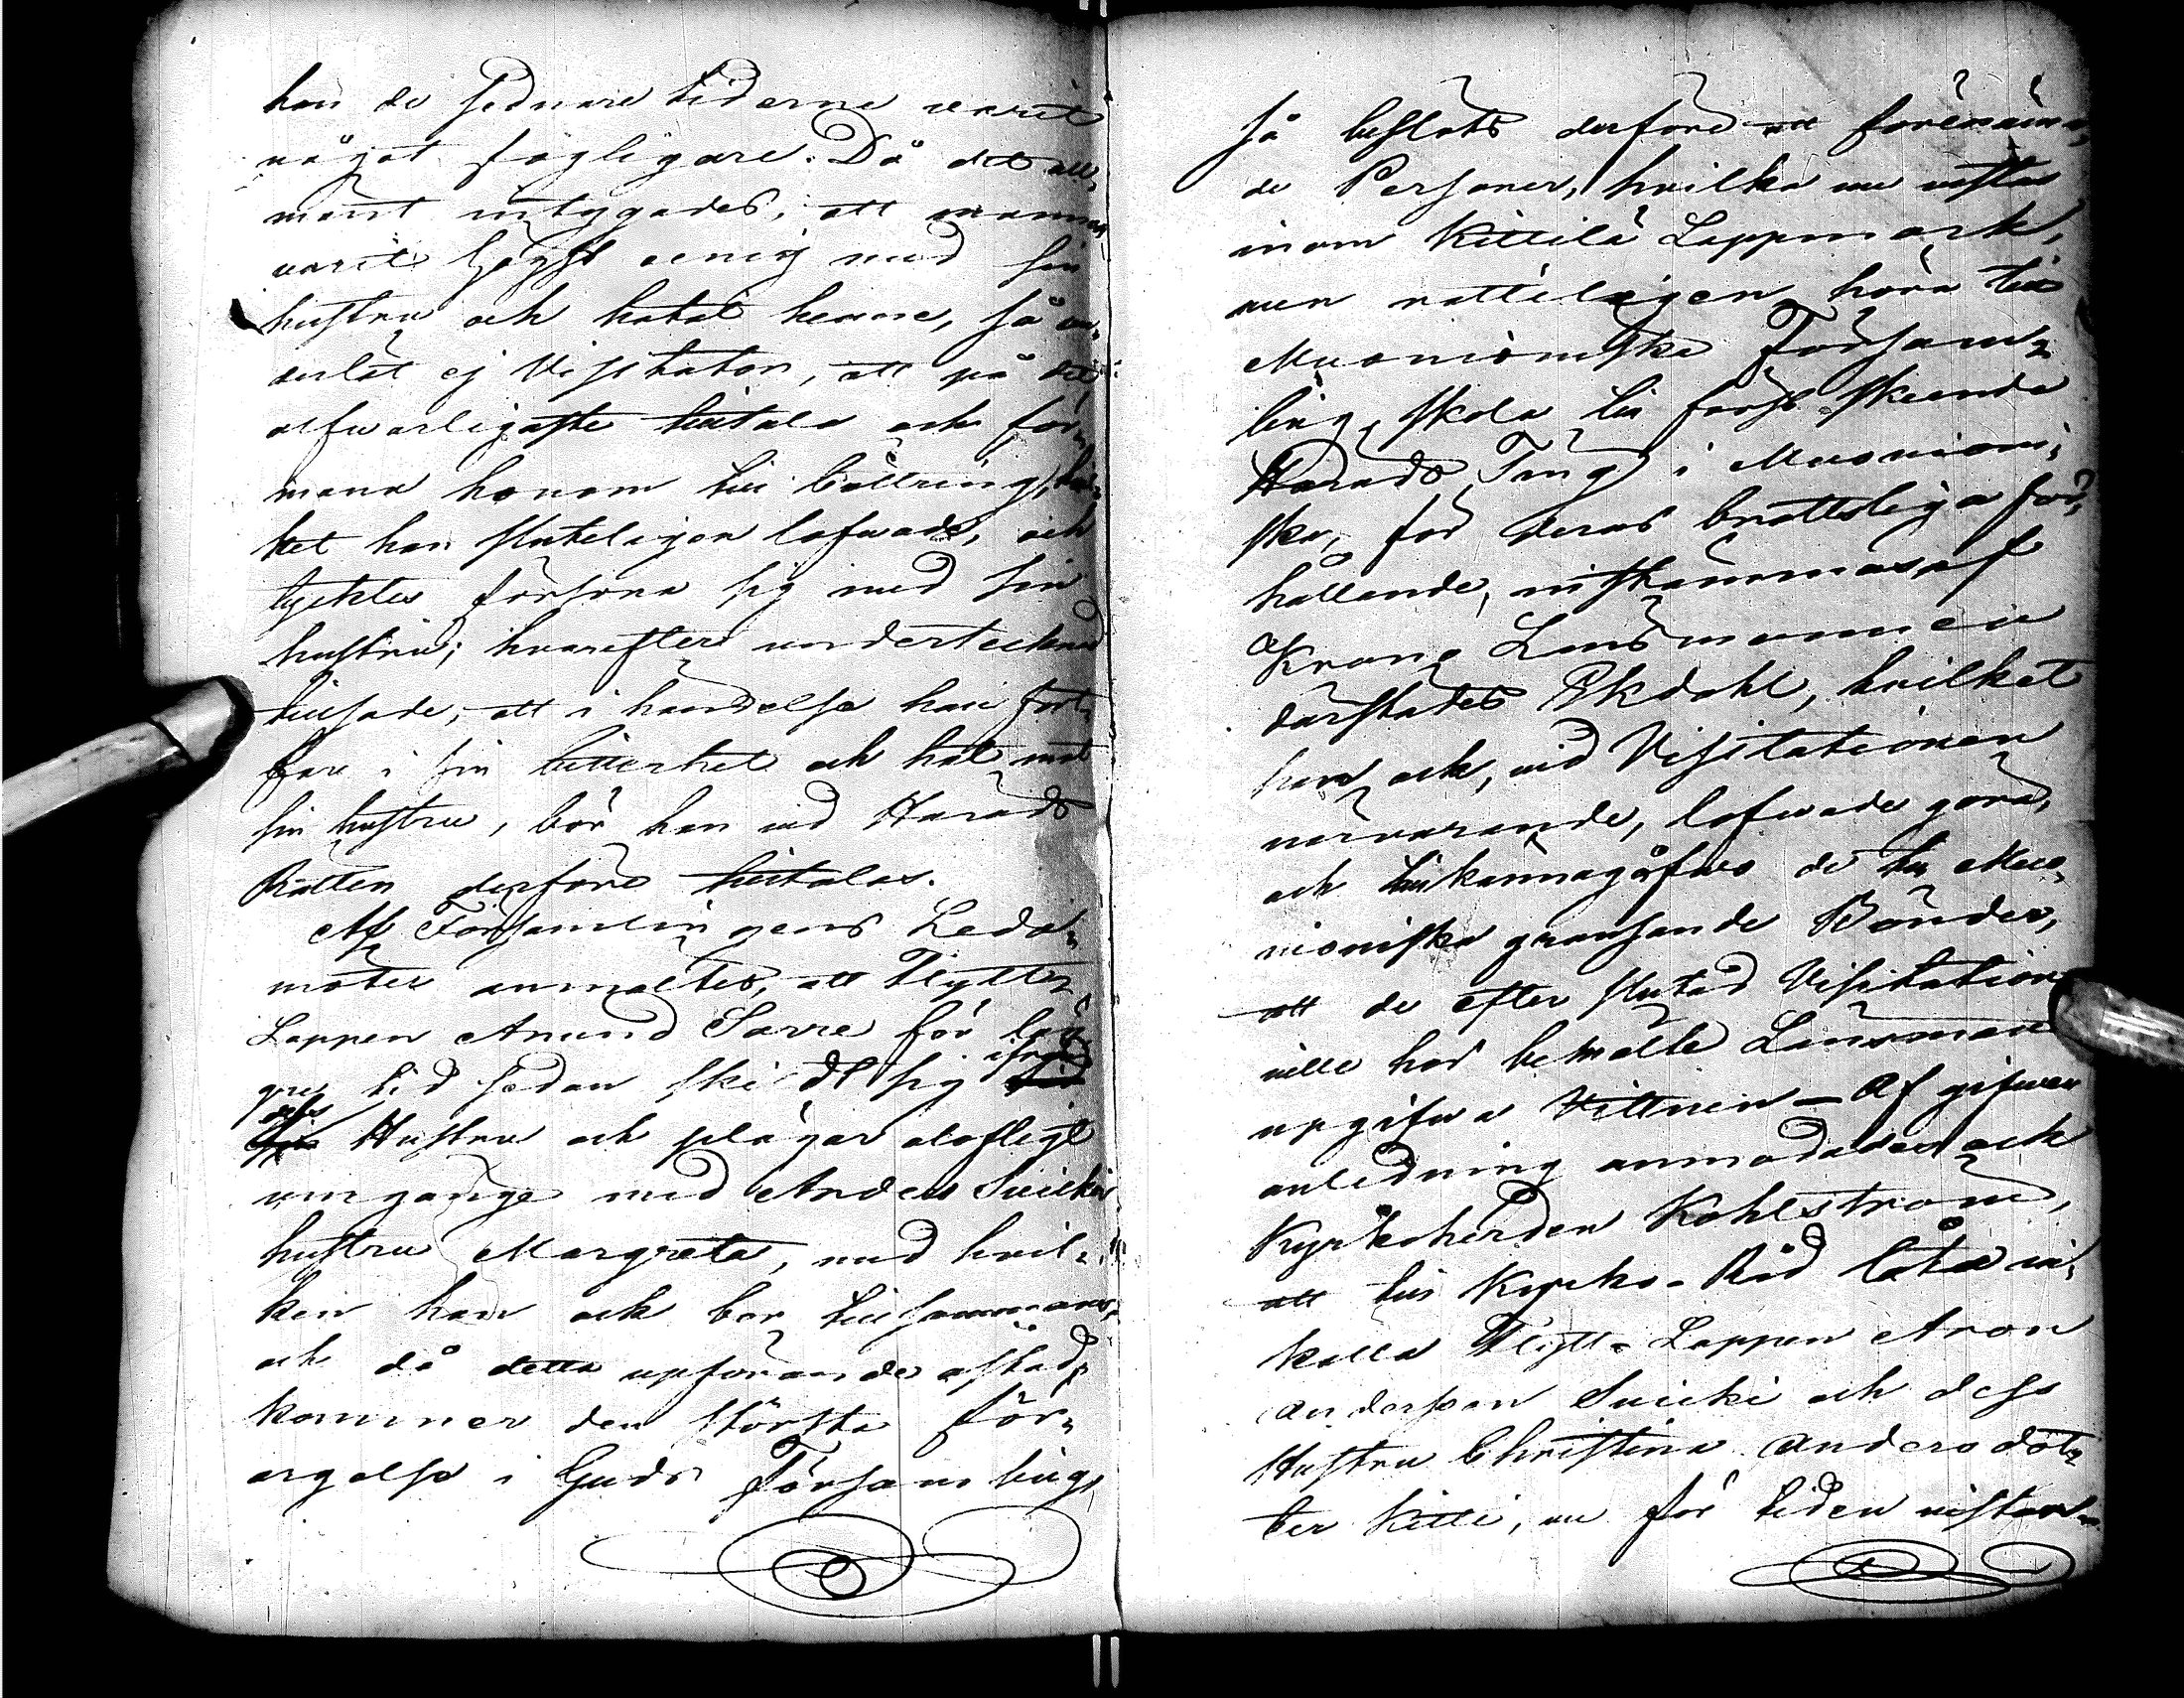 han de sednare tiderne varit
något fogligare. Då det all-
mänt intygades, att mannen
varit högst oenig med sin
hustru och hatat henne, så un-
derlät ej Visitator, att på det
alfvarligaste tiltala och för-
mana honom till bättring, hvil-
ket han sluteligen lofvade, och
tycktes försona sig med sin
hustru; hvarefter undertecknad
tillsade, att i händelse han fort-
far i sin bitterhet och hat mot
sin hustru, bör han vid Härads
Rätten derföre tiltalas.
Af Församlingens Leda-
möter anmältes, att Flytt-
Lappen Amund Sarre för läng-
re tid sedan skildt sig ifrån
dess Hustru och plägar olofligt
umgänge med Anders Suickis
hustru Margreta, med hvil-
ken han ock bor tillsammans,
och då detta upförande åstad-
kommer den största för-
argelse i Guds Församling,
så beslöts derföre att förenämn-
de Personer, hvilka nu vistas
inom Kittilä Lappmark,
men rätteligen höra till
Muonioniska Försam-
ling, skola till först skeende
Härads Ting i Muonioni-
ska, för deras brottsliga för-
hållande, instämmas af
Krono Länsmannen
därstädes Ekdahl, hvilket
han ock, vid Visitationen
närvarande, lofvade göra,
och tillkännagåfvo de till Muo-
nioniska gränsande Bönder,
att de efter slutad Visitation
ville hos bemälte Länsman
upgifva Vittnen – Af gifven
anledning anmodades ock
Kyrkoherden Kohlström,
att till Kyrko-Råd låta in-
kalla Flytt-Lappen Aron
Andersson Suicki och dess
Hustru Christina Andersdot-
ter Kitti, nu för tiden vistan-